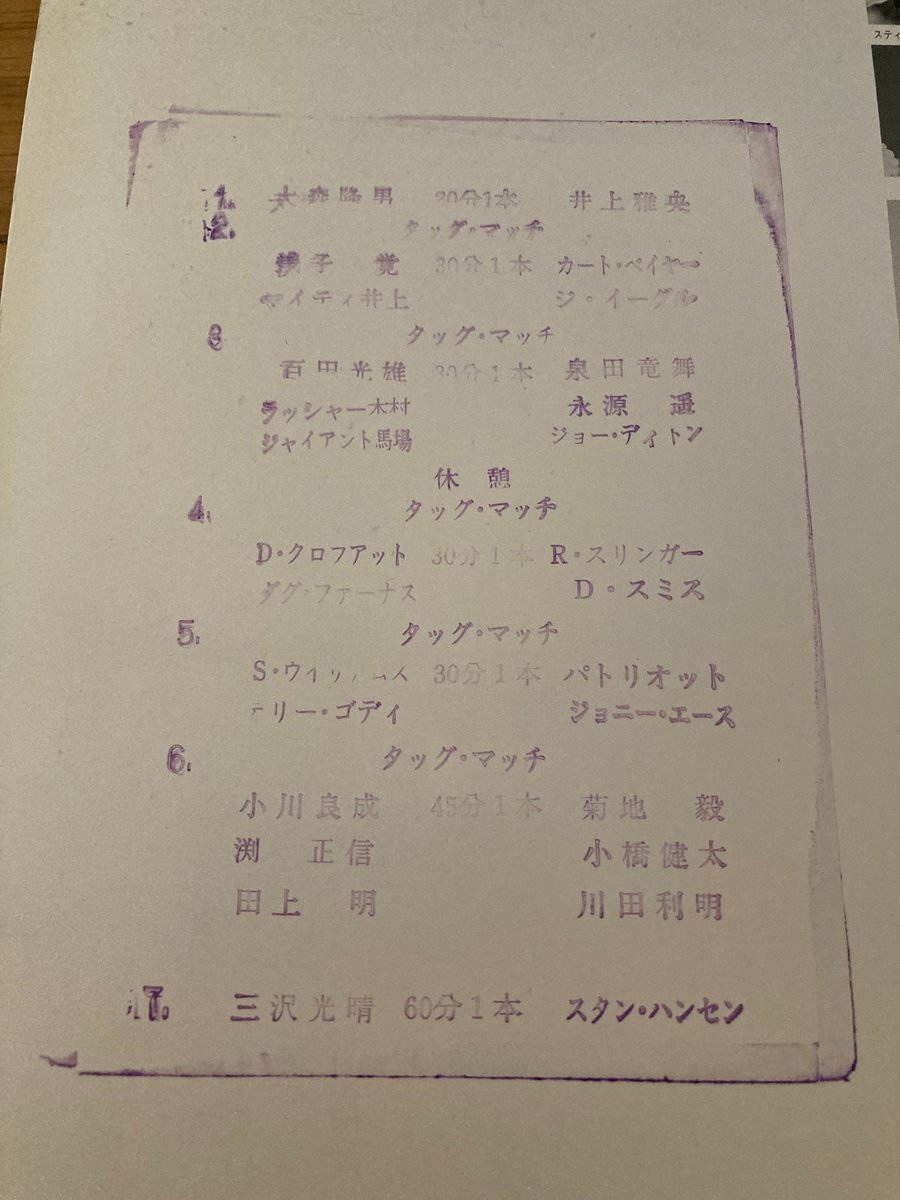 スティ
1. 大森隆男 20分1本 井上雅央
2. タッグ・マッチ
渕子 覚 30分1本 カート・ベイヤー
マイティ井上 ジ・イーグル
3 タッグ・マッチ
百田光雄 30分1本 泉田竜舞
ラッシャー木村 永源 遥
ジャイアント馬場 ジョー・ディトン
休憩
4. タッグ・マッチ
D・クロフアット 30分1本 R・スリンガー
ダグ・ファーナス D・スミス
5. タッグ・マッチ
S・ウィリアムス 30分1本 パトリオット
テリー・ゴディ ジョニー・エース
6. タッグ・マッチ
小川良成 45分1本 菊地 毅
渕 正信 小橋健太
田上 明 川田利明
7. 三沢光晴 60分1本 スタン・ハンセン